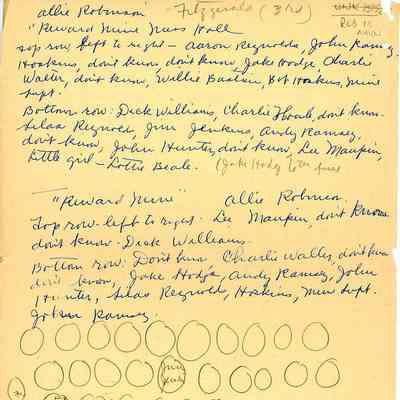 Allie Robinson Fitzgerald (3rd)
"Reward Mine Mess Hall
Top row left to right - Aaron Reynolds, John Ramsey
Hoskins, don't know, don't know, Jake Hodge, Charlie
Walter, don't know, Willie Baskin, Bob Hoskins, mine
supt.
Bottom row: Dick Williams, Charlie don't know
Silas Reynolds, Jim Jenkins, Andy Ramsey,
don't know, John Hunter, don't know, Lee Maupin,
Little girl - Lottie Beale. (Jake Hodg
"Reward Mine" Allie Robinson.
Top row - left to right: Lee Maupin, don't know
don't know - Dick Williams.
Bottom row: Don't know Charlie Walter, don't know
don't know, Jake Hodge, Andy Ramsey, John
Hunter, Silas Reynolds, Hoskins, mine supt.
John Ramsey.